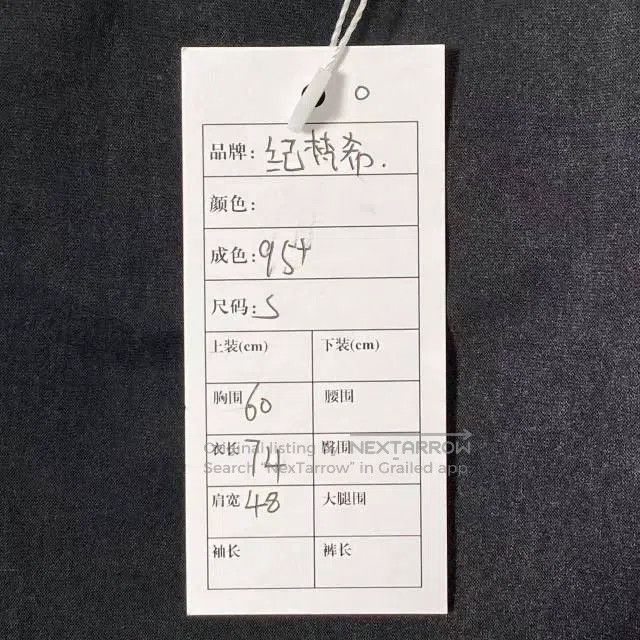 品牌: 纪梵希.
颜色:
成色: 954
尺码: S
上装(cm) 下装(cm)
胸围 60 腰围
衣长 74 臀围
肩宽 48 大腿围
袖长 裤长
Original listing by NEXTARROW
Search "NexTarrow" in Grailed app